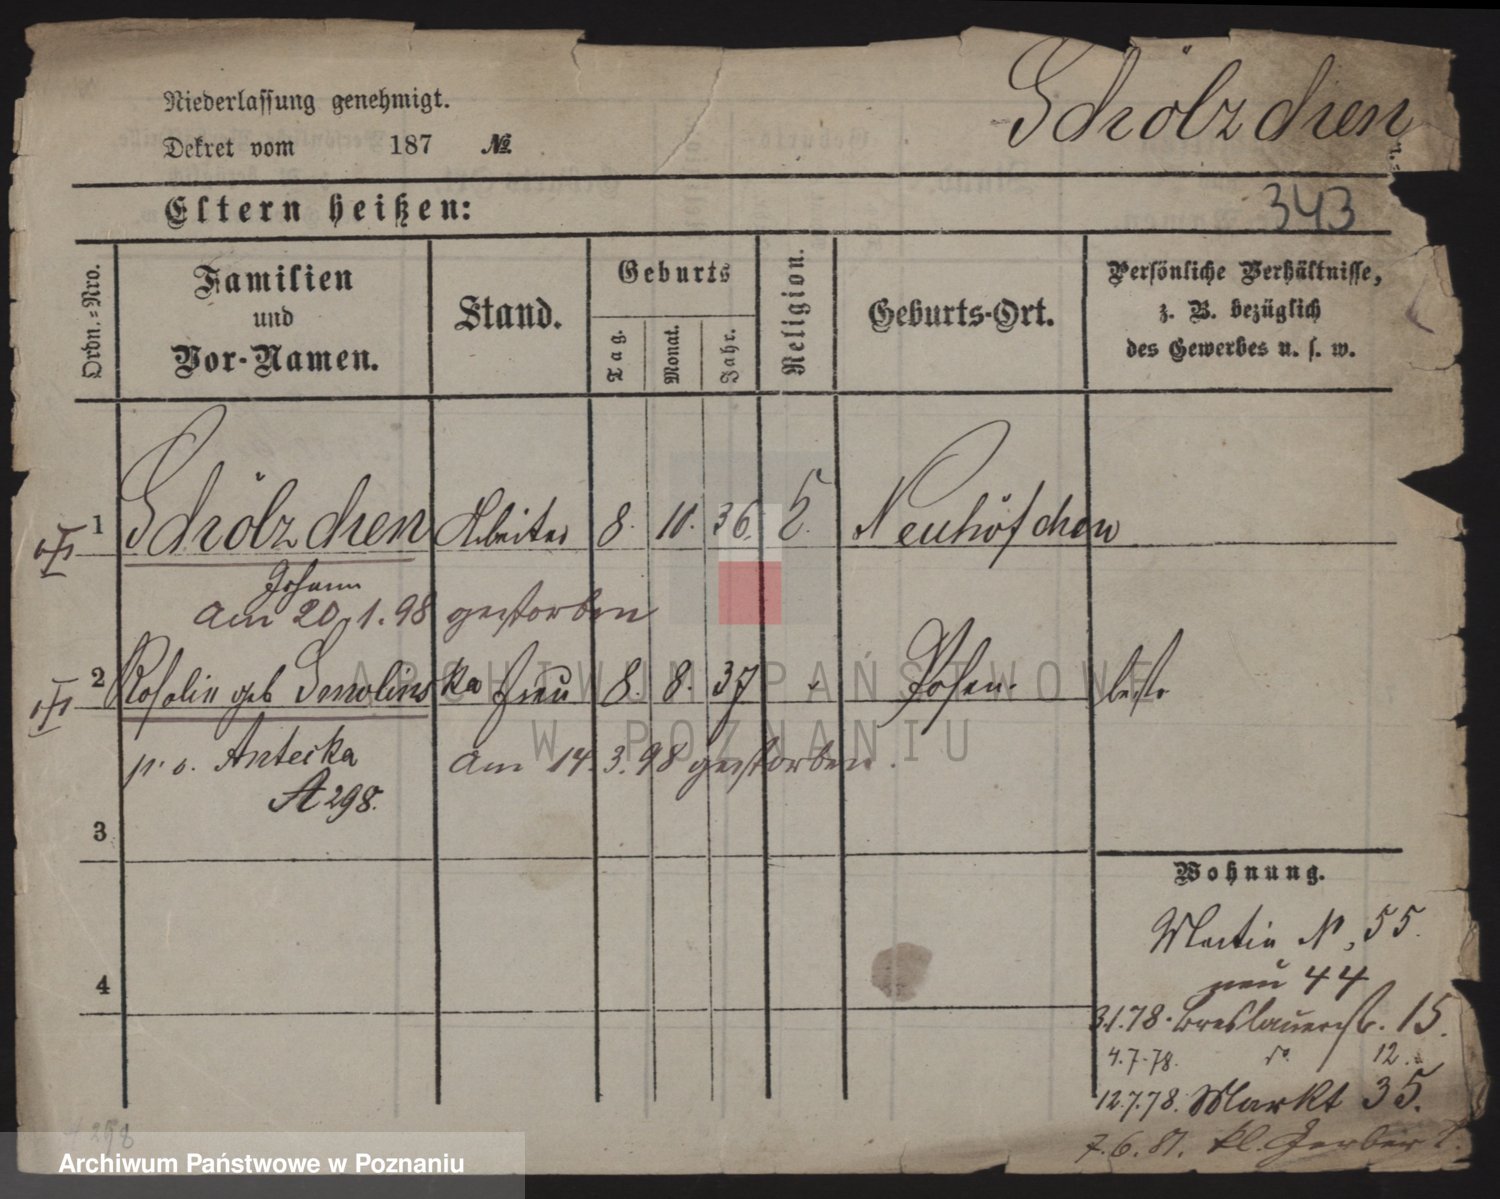 Schölzchen
Niederlassung genehmigt.
Dekret vom 187 No.
343
Eltern heißen:
Ordn.=Nro.
Familien
und
Vor-Namen.
Stand.
Geburts
Tag.
Monat.
Jahr.
Religion.
Geburts-Ort.
Persönliche Verhältnisse,
z. B. bezüglich
des Gewerbes u. s. w.
1 Schölzchen Arbeiter 8. 10. 36. Neuhöfchen
Johann
am 20.1.98 gestorben
2 Rosalie geb Smolinska Frau 8. 8. 37 Posen.
Antecka am 14.3.98 gestorben.
A 298.
3
4
Wohnung.
Martin N, 55.
neu 44
3.1.78. Breslauerstr. 15.
4.7.78. do 12.
12.7.78. Markt 35.
7.6.81. kl. Gerber
A 298
ARCHIWUM PAŃSTWOWE
W POZNANIU
Archiwum Państwowe w Poznaniu